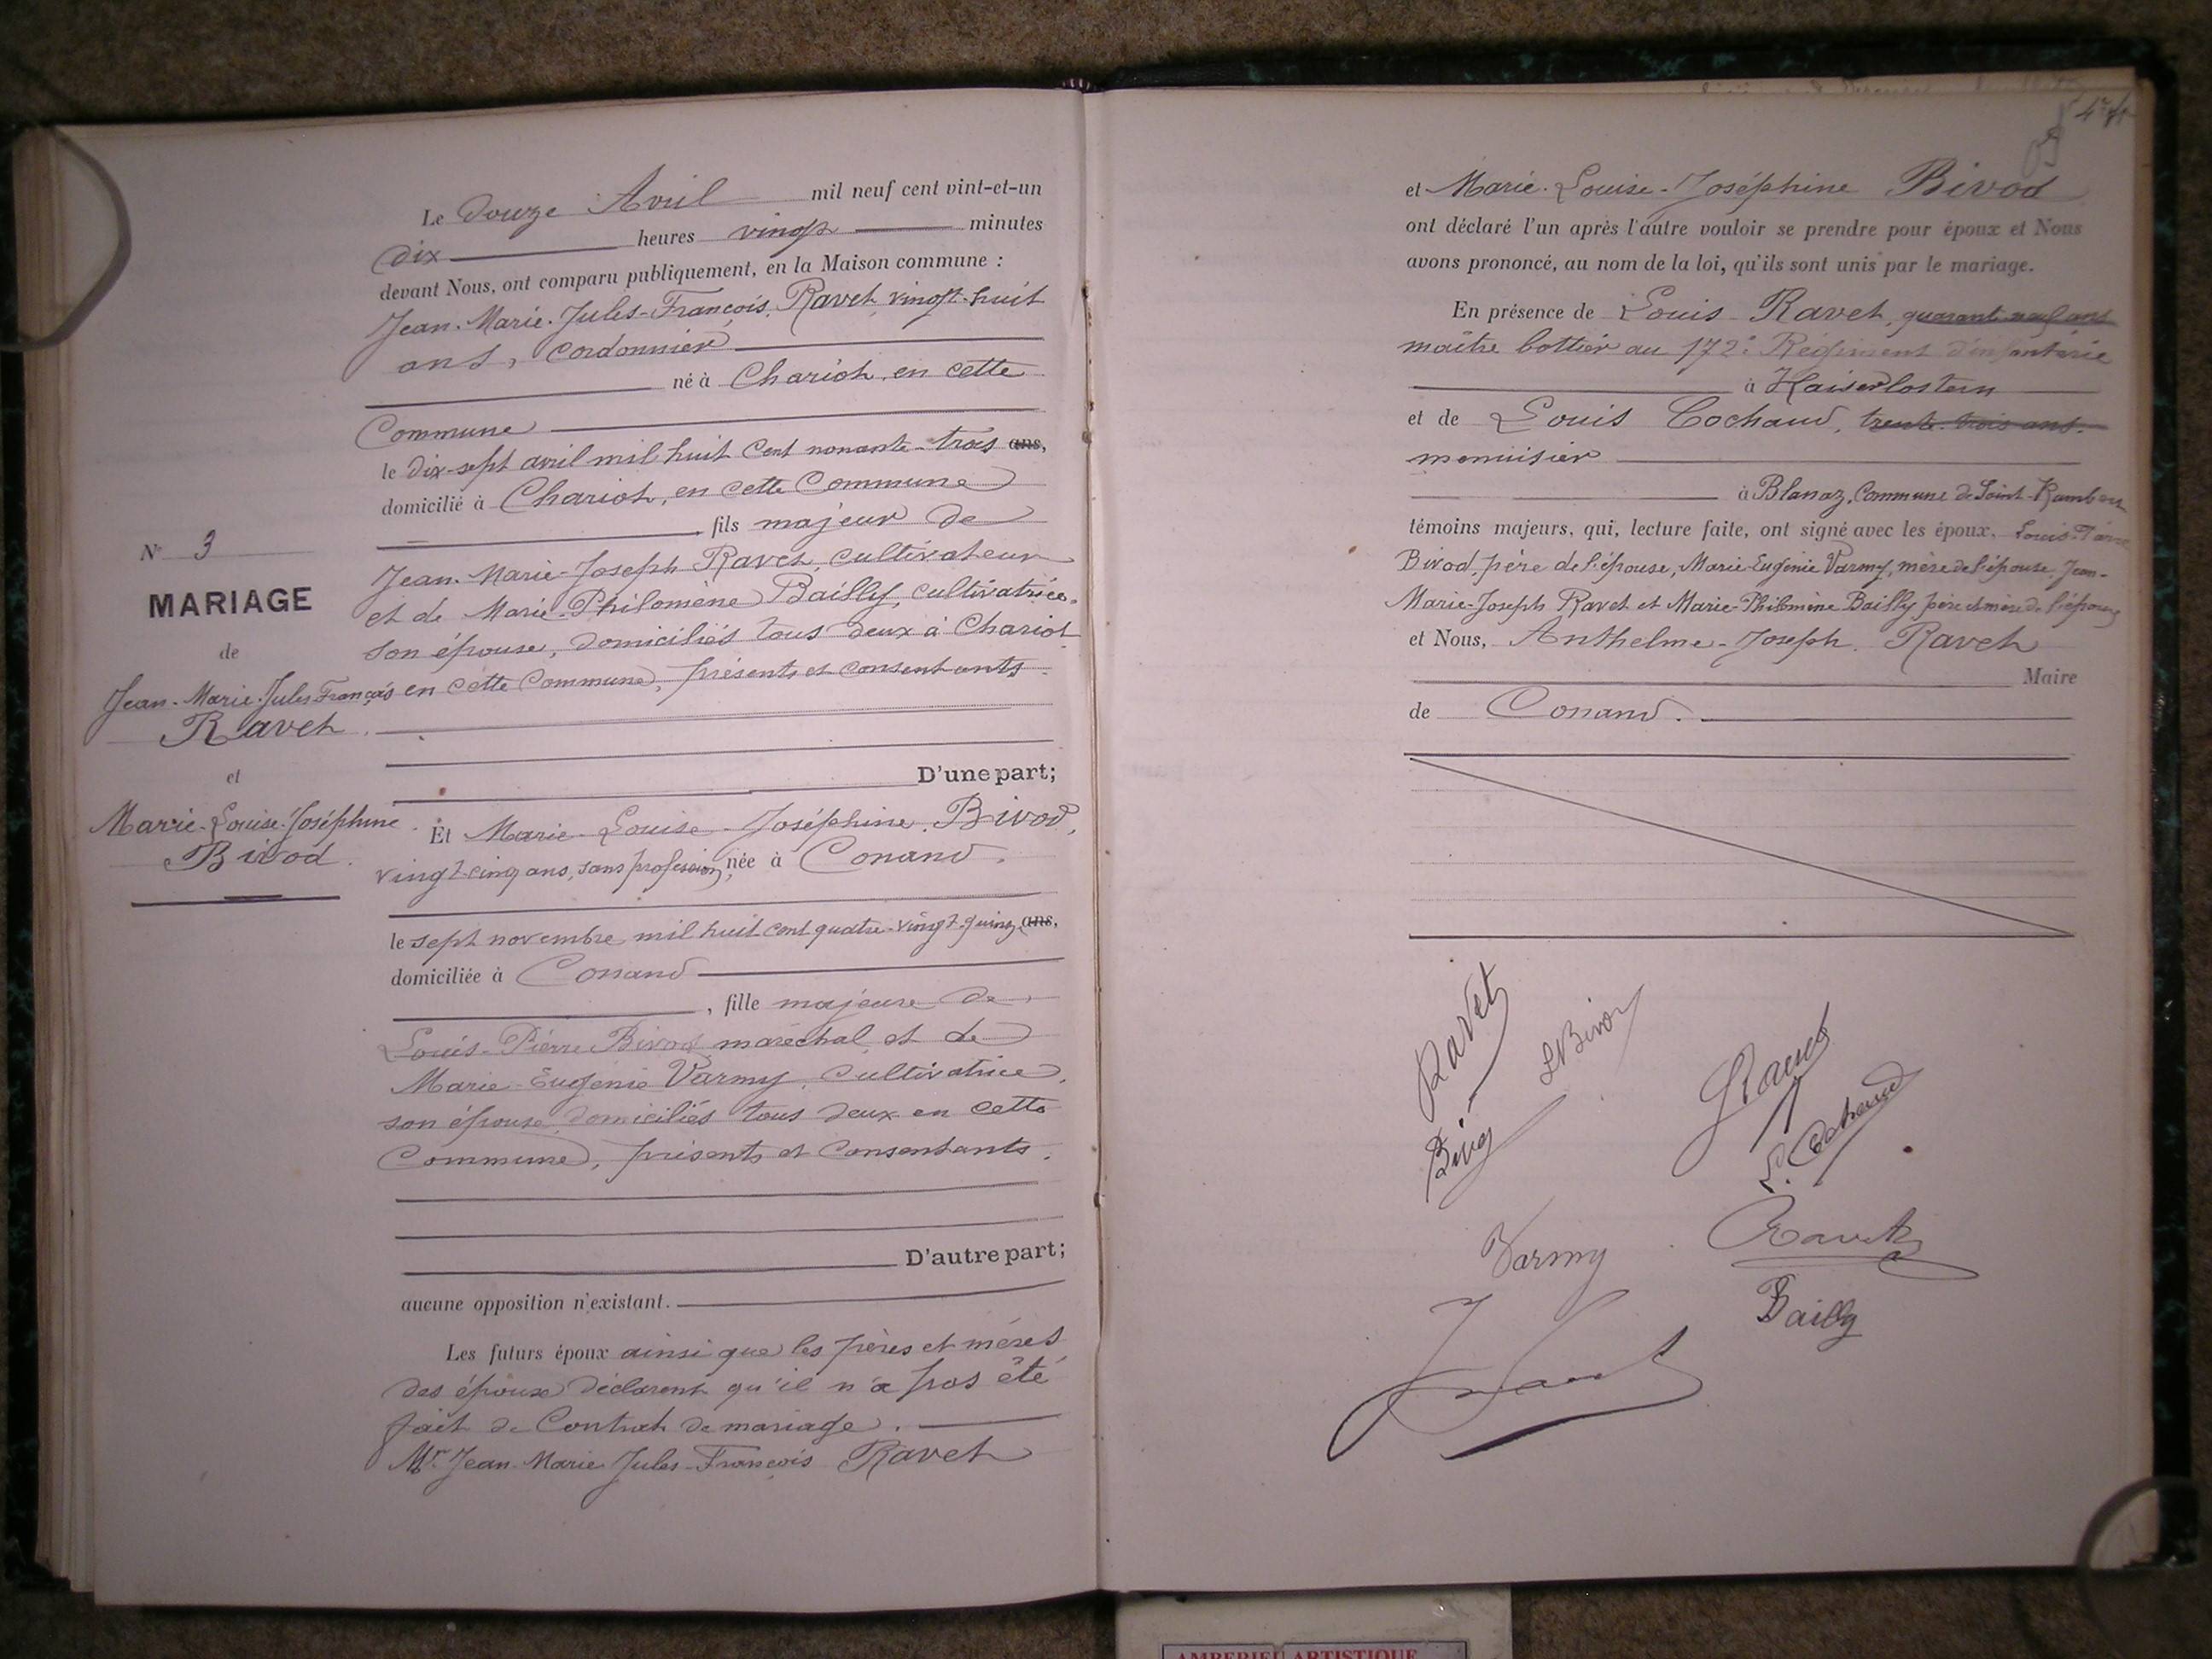 Le douze Avril mil neuf cent vint-et-un
dix heures vingt minutes
devant Nous, ont comparu publiquement, en la Maison commune :
Jean-Marie-Jules-François Ravet, vingt-huit
ans, cordonnier
né à Chariot, en cette
Commune
le dix-sept avril mil huit cent nonante-trois ans,
domicilié à Chariot, en cette Commune
fils majeur de
Jean-Marie-Joseph Ravet, cultivateur
et de Marie-Philomène Bailly, cultivatrice,
son épouse, domiciliés tous deux à Chariot
en cette Commune, présents et consentants
N° 3
MARIAGE
de
Jean-Marie-Jules François
Ravet
et
Marie-Louise-Joséphine
Bivod
D'une part;
Et Marie-Louise-Joséphine Bivod,
vingt-cinq ans, sans profession, née à Conand,
le sept novembre mil huit cent quatre-vingt-quinze ans,
domiciliée à Conand
, fille majeure de
Louis-Pierre Bivod maréchal et de
Marie-Eugénie Varmy, cultivatrice,
son épouse domiciliés tous deux en cette
Commune, présents et consentants.
D'autre part;
aucune opposition n'existant.
Les futurs époux ainsi que les pères et mères
des époux déclarent qu'il n'a pas été
fait de Contrat de mariage.
Mr Jean-Marie Jules-François Ravet
et Marie-Louise-Joséphine Bivod
ont déclaré l'un après l'autre vouloir se prendre pour époux et Nous
avons prononcé, au nom de la loi, qu'ils sont unis par le mariage.
En présence de Louis Ravet, quarante neuf ans
maître bottier au 172e Régiment d'infanterie
à Kaiserlostern
et de Louis Cochaud, trente-trois ans.
menuisier
à Blanaz, Commune de Saint-Rambert
témoins majeurs, qui, lecture faite, ont signé avec les époux, Louis-Pierre
Bivod, père de l'épouse, Marie-Eugénie Varmy, mère de l'épouse, Jean-
Marie-Joseph Ravet et Marie-Philomène Bailly père et mère de l'époux
et Nous, Anthelme-Joseph Ravet
Maire
de Conand.
Ravet
L Bivod
Ravet
L. Cochaud
Varmy
Ravet
Bailly
AMBERIEU ARTISTIQUE